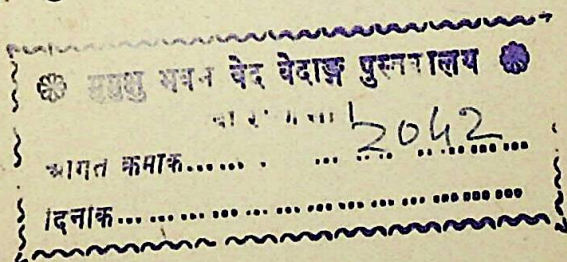 मुमुक्षु भवन वेद वेदाङ्ग पुस्तकालय
वाराणसी।
आगत क्रमाक...... 2042
दिनांक......